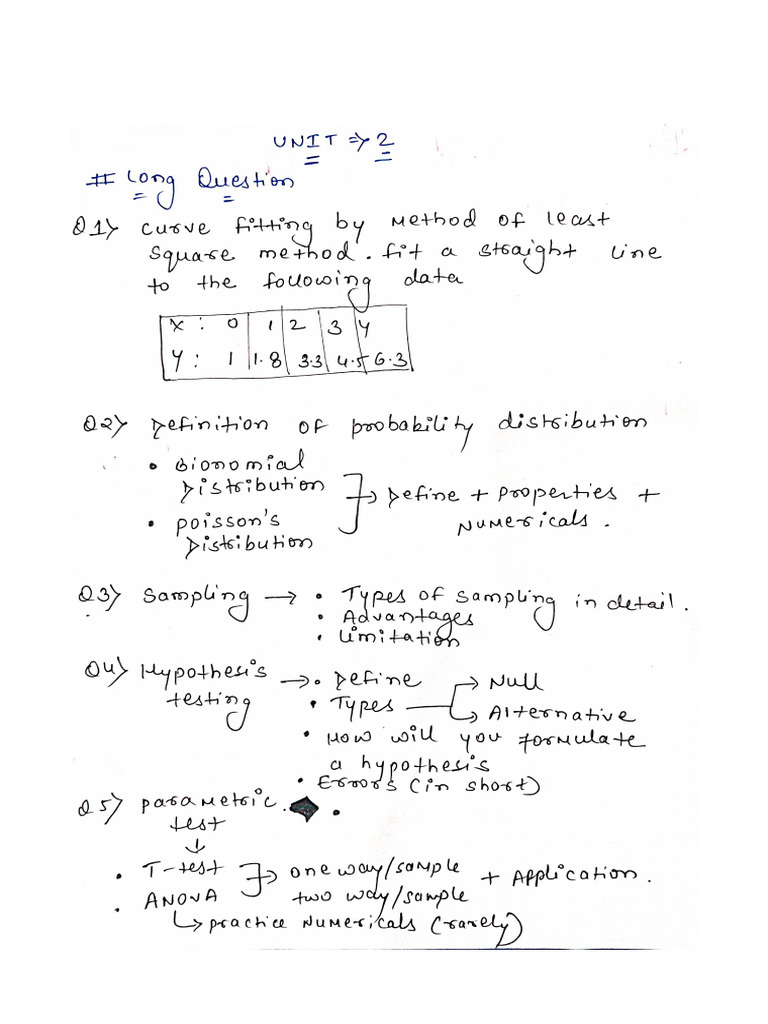 UNIT => 2
# Long Question
Q1> Curve fitting by Method of least
square method. fit a straight line
to the following data
X : 0 1 2 3 4
Y : 1 1.8 3.3 4.5 6.3
Q2> Definition of probability distribution
• Bionomial
Distribution
• Poisson's
Distribution
→ Define + Properties +
Numericals.
Q3> Sampling → • Types of Sampling in detail.
• Advantages
• Limitation
Q4> Hypothesis
testing
→ • Define
• Types → Null
→ Alternative
• How will you formulate
a hypothesis
• Errors (in short)
Q5> Parametric
test
↓
• T-test
• ANOVA
→ one way/sample
two way/sample
+ Application.
↳ practice Numericals (rarely)